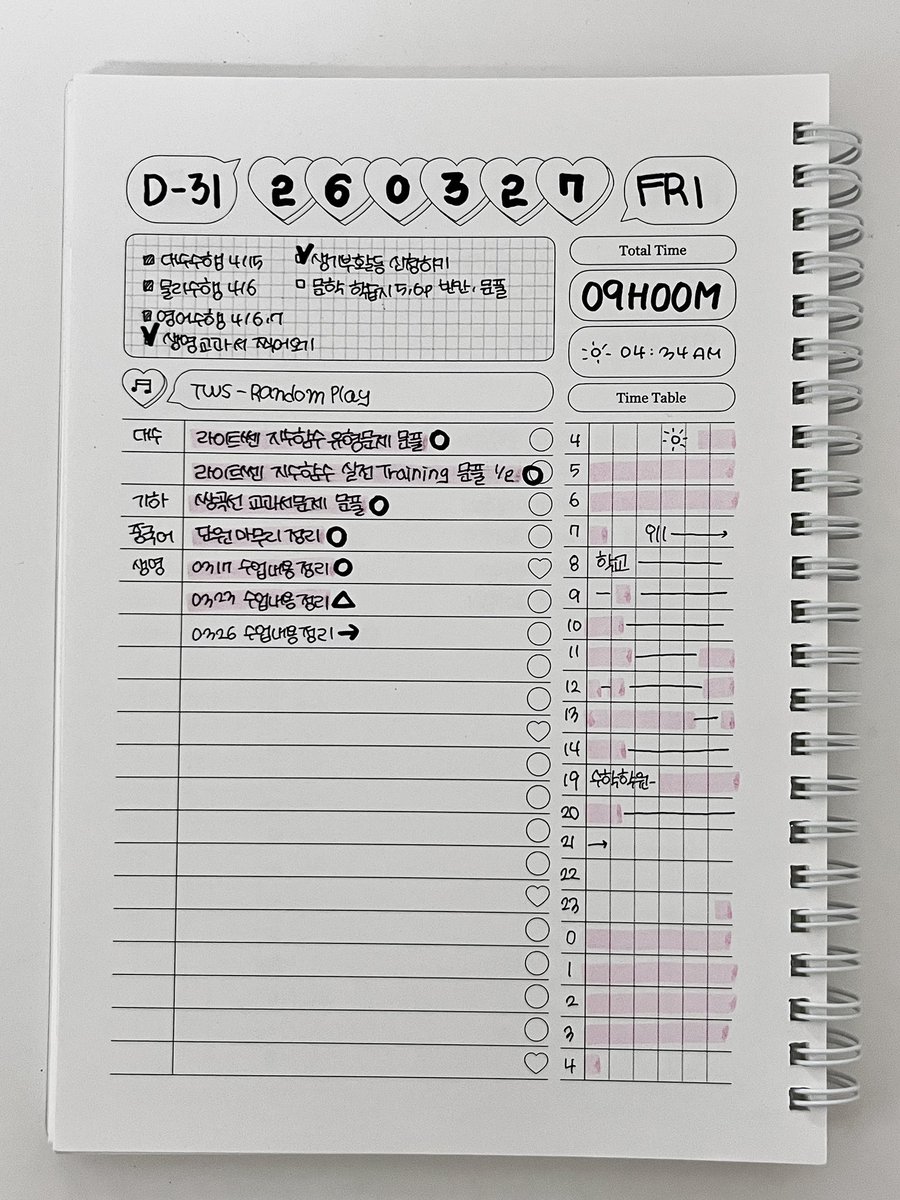 D-31 2 6 0 3 2 7 FRI
대수수행 4/15
물리수행 4/6
영어수행 4/6,7
생영교과서 찍어오기
생기부활동 신청하기
문학 학습지 5,6p 반만, 문풀
Total Time
09H00M
04:34AM
TWS - Random Play
Time Table
대수 라이트쎈 지수함수 유형문제 문풀
라이트쎈 지수함수 실전 Training 문풀 1/2
기하 쌍곡선 교과서문제 문풀
중국어 단원 마무리 정리
생영 03.17 수업내용정리
03.23 수업내용정리
03.26 수업내용정리 →
4
5
6
7
8 학교
9
10
11
12
13
14
19 수학학원
20
21 →
22
23
0
1
2
3
4